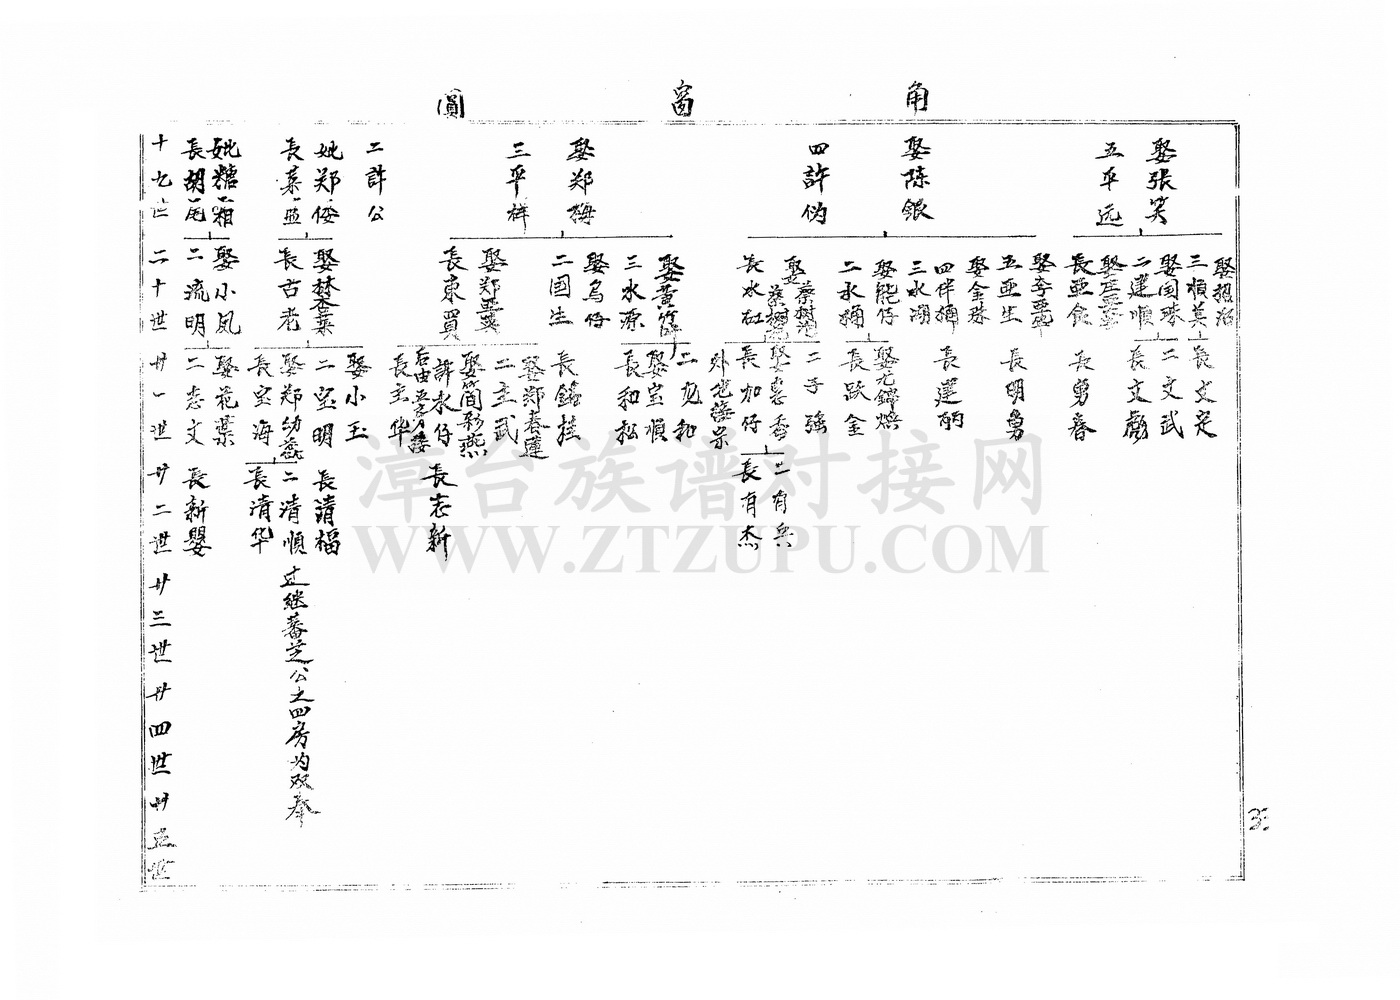 角 窗 圓
娶张笑
五平远
娶陈银
四許伪
娶郑梅
三平祥
二許公
妣郑倭
長蔡亚
妣糖霜
長胡尾
十九世
三順英
娶国珠
二建順
長亚食
娶李亚苹
五亚生
娶金珠
四伴桶
三水湖
娶能仔
二水桶
娶蔡树池
長水缸
娶黄竹
三水源
娶乌仔
二国生
長東買
娶林金葉
長古老
娶小凤
二流明
二十世
長文定
二文武
長文彪
長勇春
長明勇
長建丽
娶尤錦焙
長跃金
二子強
娶惠香
長加仔
娶宝順
長和松
娶郑春蓮
二主武
娶简彩燕
許水仔
長主华
娶小玉
二宝明
娶郑幼蕊
長宝海
娶花葉
二志文
廿一世
二有兵
長有杰
長志新
長清福
二清順 过继蕃芝公之四房为双奉
長清华
長新嬰
廿二世
廿三世
廿四世
廿五世
漳台族谱对接网
WWW.ZTZUPU.COM